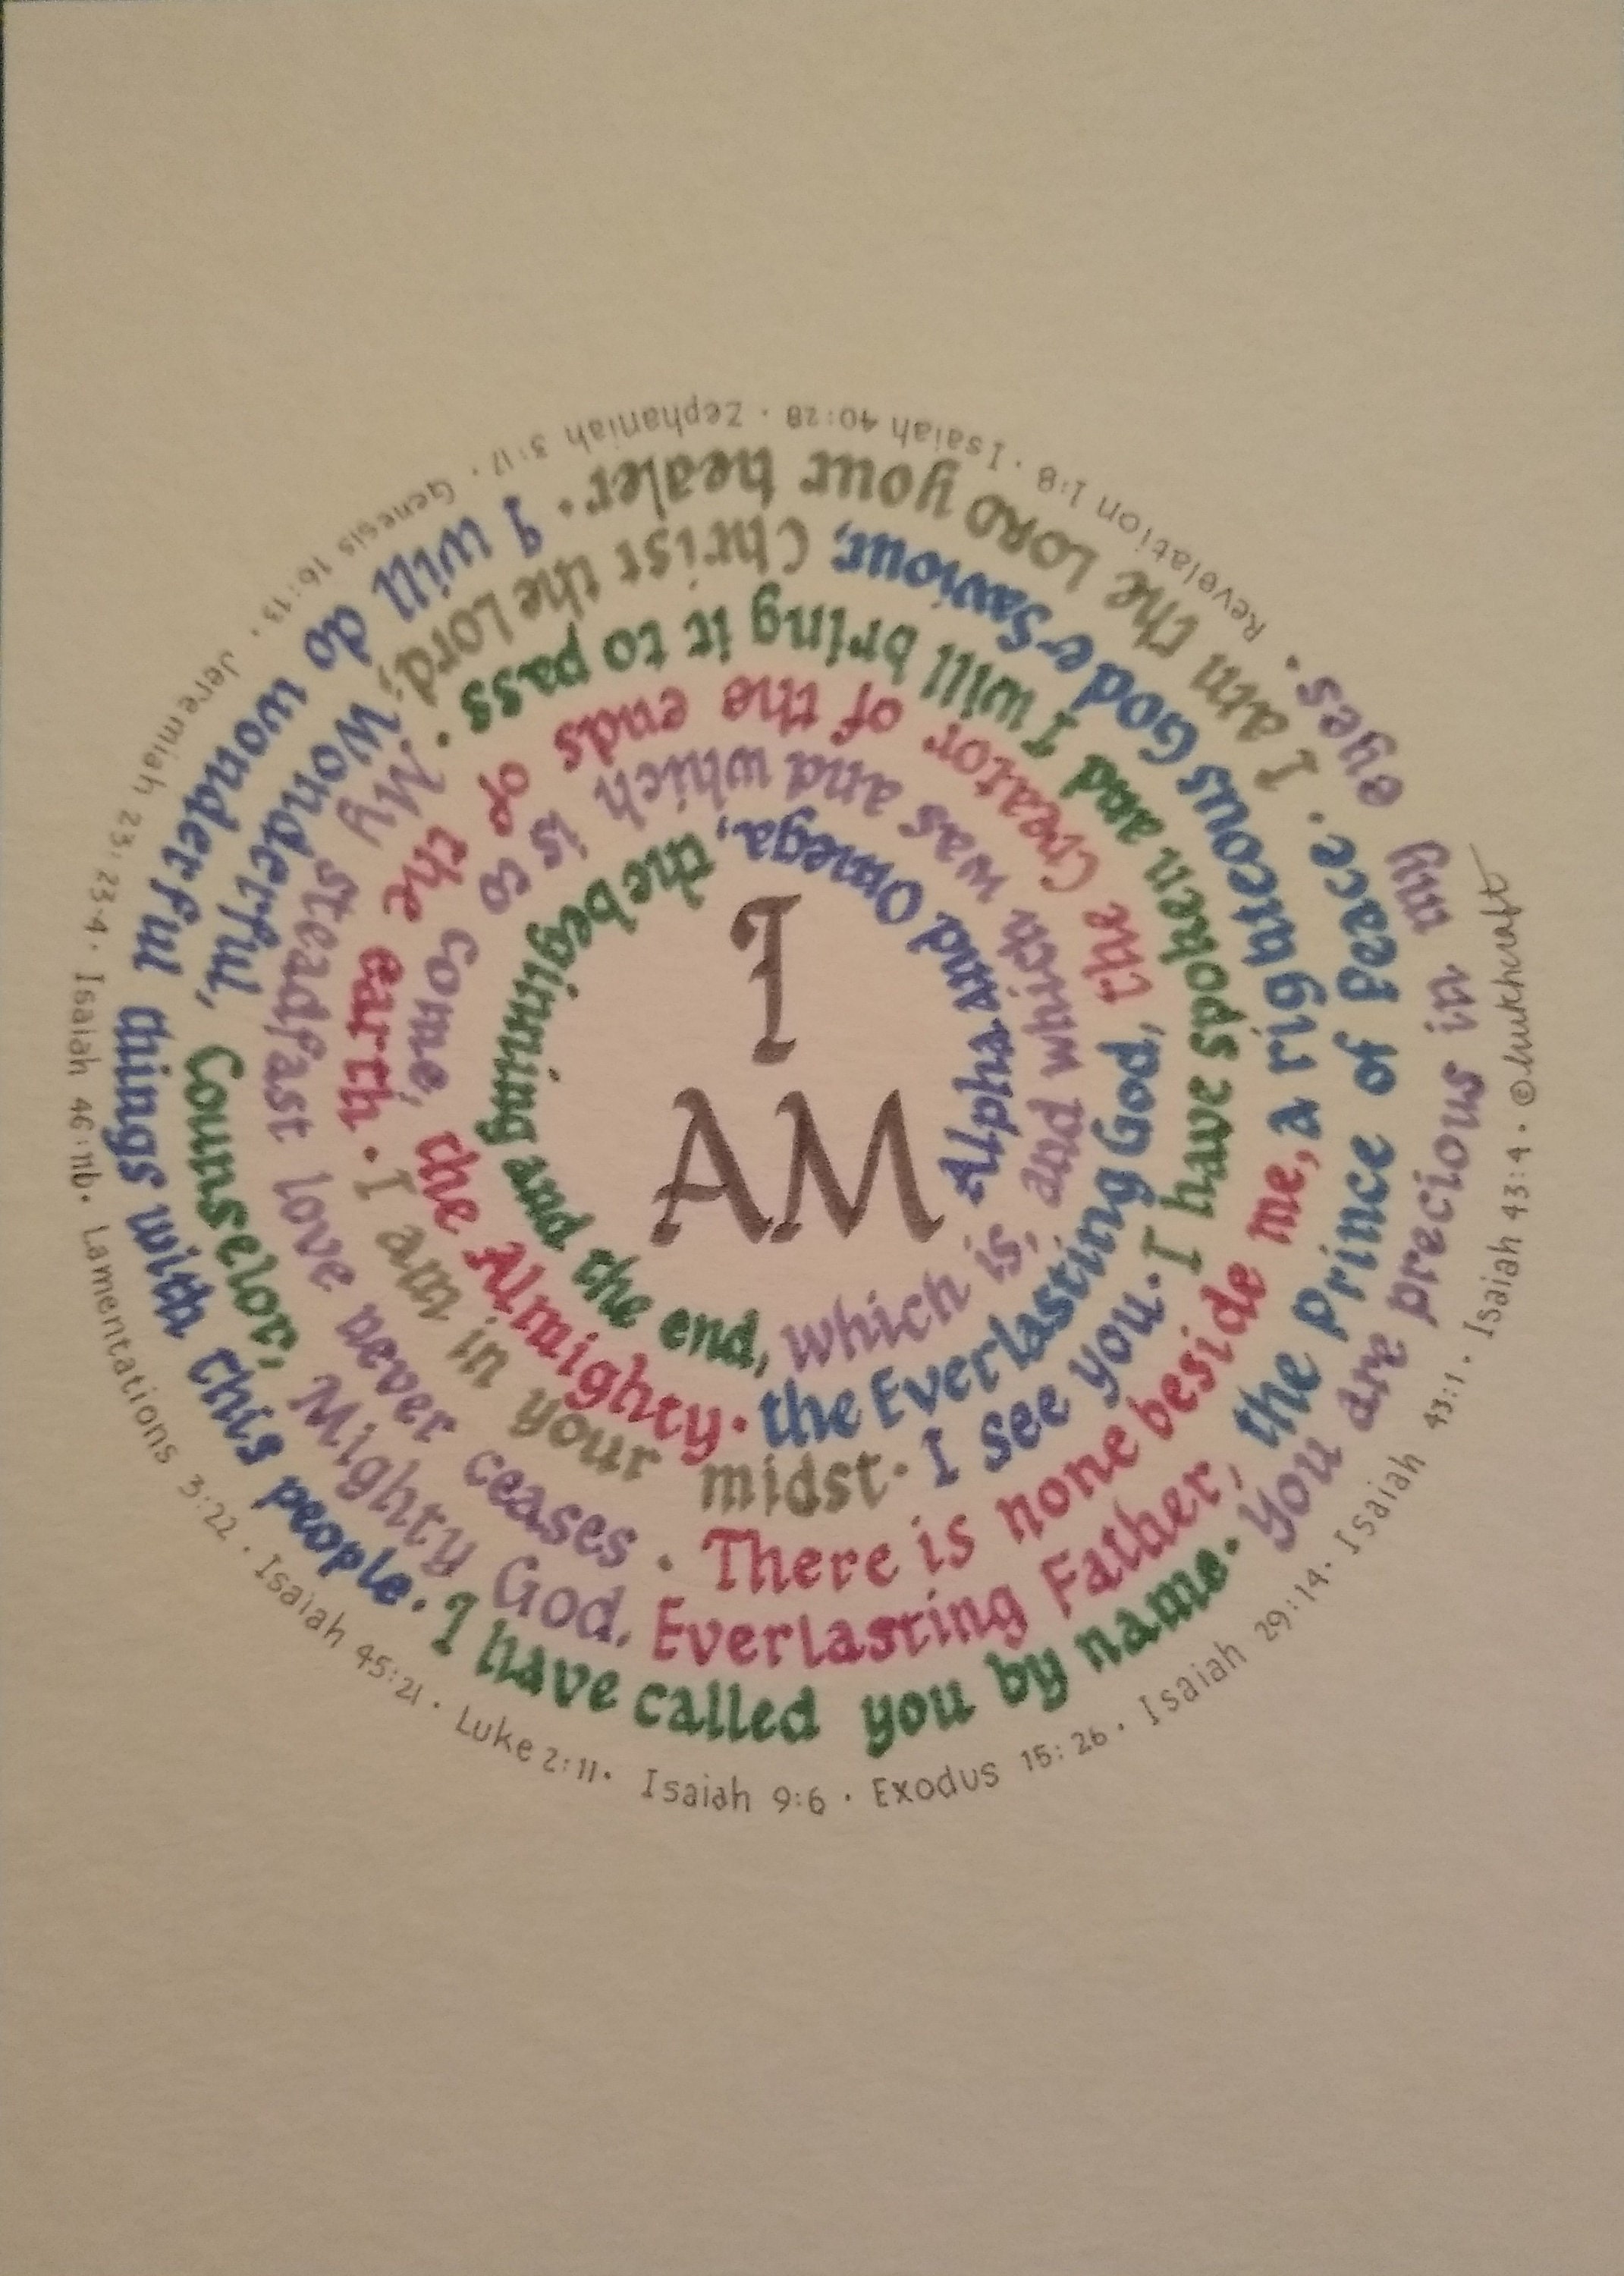 I
AM
Alpha and Omega, the beginning and the end, which is, and which was and which is to come, the Almighty · the Everlasting God, the Creator of the ends of the earth · I am in your midst · I see you · I have spoken and I will bring it to pass · My steadfast love never ceases · There is none beside me, a righteous God & Saviour, Christ the Lord; Wonderful, Counselor, Mighty God, Everlasting Father, the Prince of Peace · I am the LORD your healer · I will do wonderful things with this people · I have called you by name · You are precious in my eyes ·
Revelation 1:8 · Isaiah 40:28 · Zephaniah 3:17 · Genesis 16:13 · Jeremiah 23:23-4 · Isaiah 46:11b · Lamentations 3:22 · Isaiah 45:21 · Luke 2:11 · Isaiah 9:6 · Exodus 15:26 · Isaiah 29:14 · Isaiah 43:1 · Isaiah 43:4 · ©